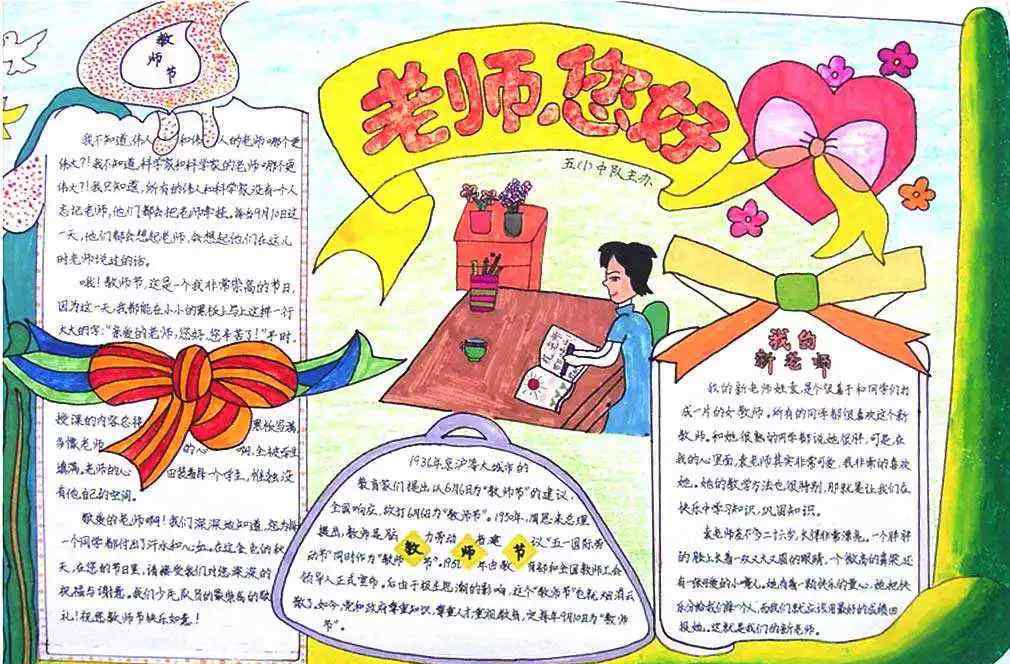 老师,您好
五(1)中队主办
教
师
节
我不知道,伟人 和伟 人的老师哪个更
伟大?!我不知道,科学家和科学家的老师哪个更
伟大?!我只知道,所有的伟人和科学家没有一个人
忘记老师,他们都会把老师牵挂。每当9月10日这
一天,他们都会想起老师,会想起他们在这儿
时老师说过的话。
哦!教师节,这是一个我非常崇高的节日,
因为这一天,我都能在小小的黑板上写上这样一行
大大的字:“亲爱的老师,您好,您辛苦了!”平时,
授课的内容总将 黑板写满
多像老师 的心 啊,全被学生
填满,老师的心 田装着每一个学生,惟独没
有他自己的空间。
敬爱的老师啊!我们深深地知道,您为每
一个同学都付出了汗水和心血。在这金色的秋
天,在您的节日里,请接受我们对您深深的
祝福与谢意。我们少先队员的最崇高的敬
礼!祝您教师节快乐如意!
1936年京沪等大城市的
教育家们提出以6月6日为“教师节”的建议,
全国响应,故打6月6日为“教师节”。1950年,周恩来总理
提出,教师是脑 力劳动 者建 议“五一国际劳
动节”同时作为“教师 节”。1951 年由教 育部和全国教师工会
领导人正式宣命。后由于极左思潮的影响,这个“教师节”也就烟消云
散了。如今,党和政府尊重知识,尊重人才,重视教育,定每年9月10日为“教师
节”。
教 师 节
我的
新老师
我的新老师姓袁,是个很善于和同学们打
成一片的好教师。所有的同学都很喜欢这个新
教师。和她很熟的同学都说她很胖,可是,在
我的心里面,袁老师其实非常可爱,我非常的喜欢
她。她的教学方法也很特别,那就是让我们在
快乐中学习知识,巩固知识。
袁老师差不多二十六岁,长得非常漂亮,一个胖胖
的脸上长着一双大大又圆的眼睛,一个微高的鼻梁,还
有一张可爱的小嘴儿。她有着一颗快乐的童心,她把快
乐分给我们每一个人,而我们就应该用最好的成绩回
报她。这就是我们的新老师。